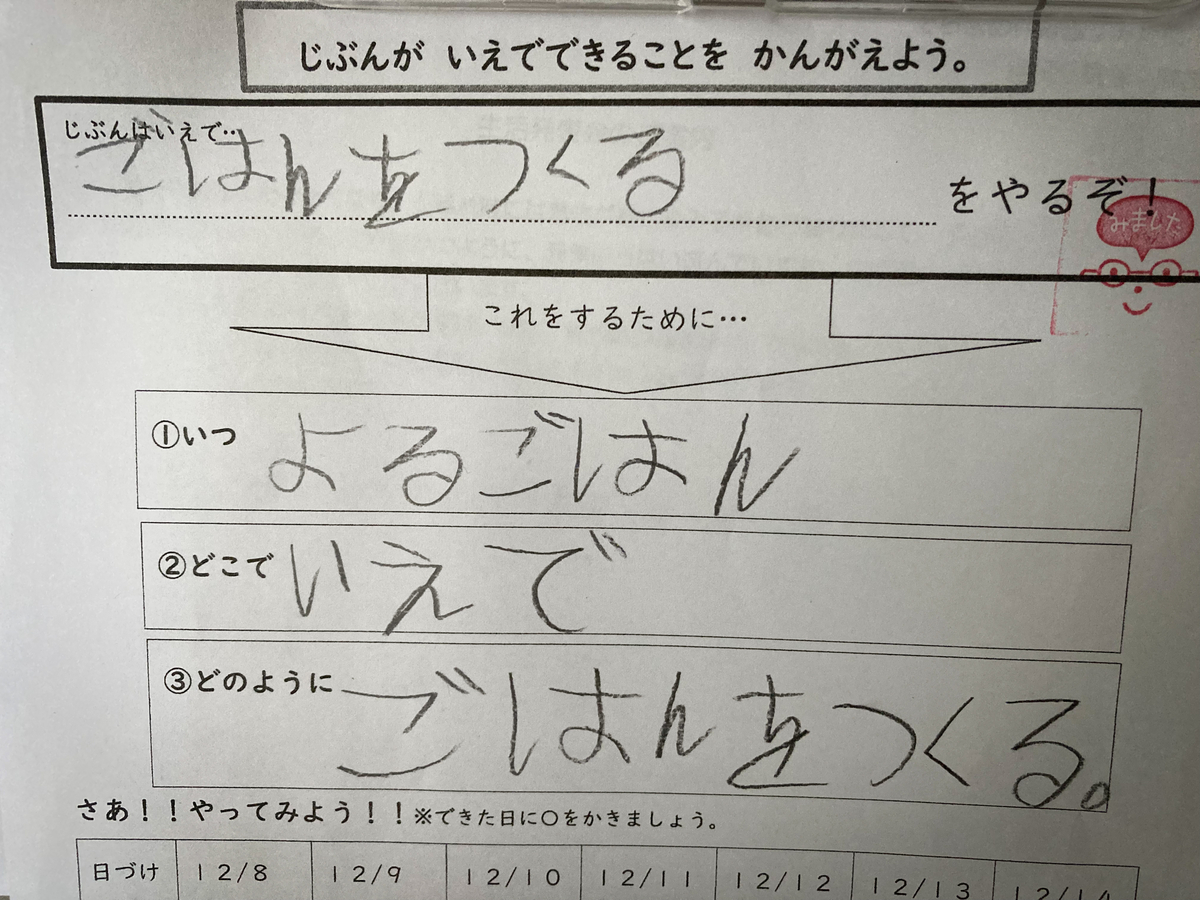 じぶんが いえでできることを かんがえよう。
じぶんはいえで…
ごはんをつくる
をやるぞ！
みました
これをするために…
①いつ よるごはん
②どこで いえで
③どのように ごはんをつくる。
さあ！！やってみよう！！※できた日に〇をかきましょう。
日づけ 12/8 12/9 12/10 12/11 12/12 12/13 12/14